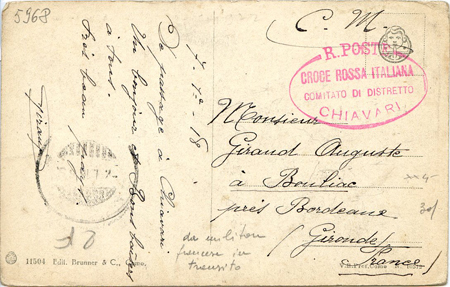 5968
C. M.
R. POSTE
CROCE ROSSA ITALIANA
COMITATO DI DISTRETTO
CHIAVARI
7-7e-18
De passage à Chiavari
Un bonjour
à tous.
Très beau
Giraud
Monsieur
Giraud Auguste
à Bouliac
près Bordeaux
(Gironde)
France
da militari
francesi in
transito
11504 Edit. Brunner & C.,